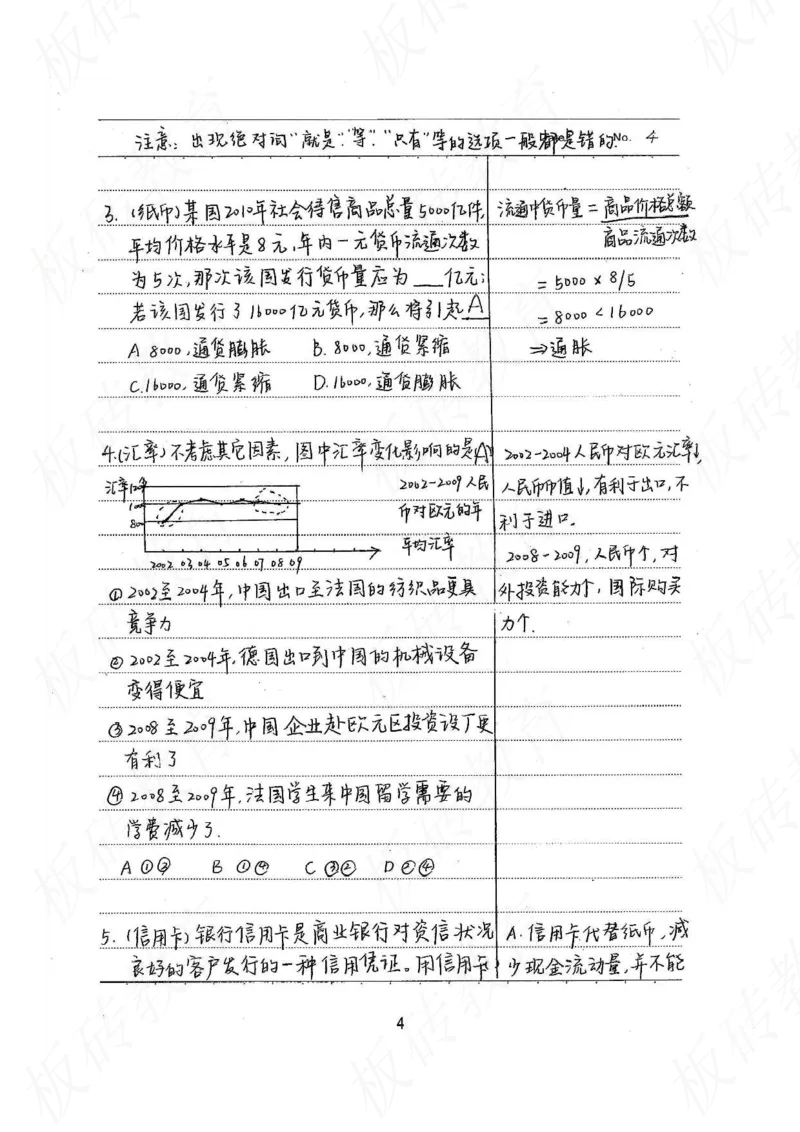 注意：出现绝对词“就是”“等”“只有”等的选项一般都是错的 No. 4
3.（纸币）某国2010年社会待售商品总量5000亿件，
平均价格水平是8元，年内一元货币流通次数
为5次，那次该国发行货币量应为___亿元；
若该国发行了16000亿元货币，那么将引起A
A 8000，通货膨胀 B. 8000，通货紧缩
C.16000，通货紧缩 D.16000，通货膨胀
流通中货币量=商品价格总额
商品流通次数
=5000×8/5
=8000<16000
⇒通胀
4.（汇率）不考虑其它因素，图中汇率变化影响的是A
汇率120
100
80
2002 03 04 05 06 07 08 09
2002-2009人民
币对欧元的年
平均汇率
①2002至2004年，中国出口至法国的纺织品更具
竞争力
②2002至2004年，德国出口到中国的机械设备
变得便宜
③2008至2009年，中国企业赴欧元区投资设厂更
有利了
④2008至2009年，法国学生来中国留学需要的
学费减少了.
A ①③ B ①④ C ③② D ②④
2002-2004人民币对欧元汇率↓，
人民币币值↓，有利于出口，不
利于进口。
2008-2009，人民币↑，对
外投资能力↑，国际购买
力↑.
5.（信用卡）银行信用卡是商业银行对资信状况
良好的客户发行的一种信用凭证。用信用卡
A.信用卡代替纸币，减
少现金流动量，并不能
4
板砖教育